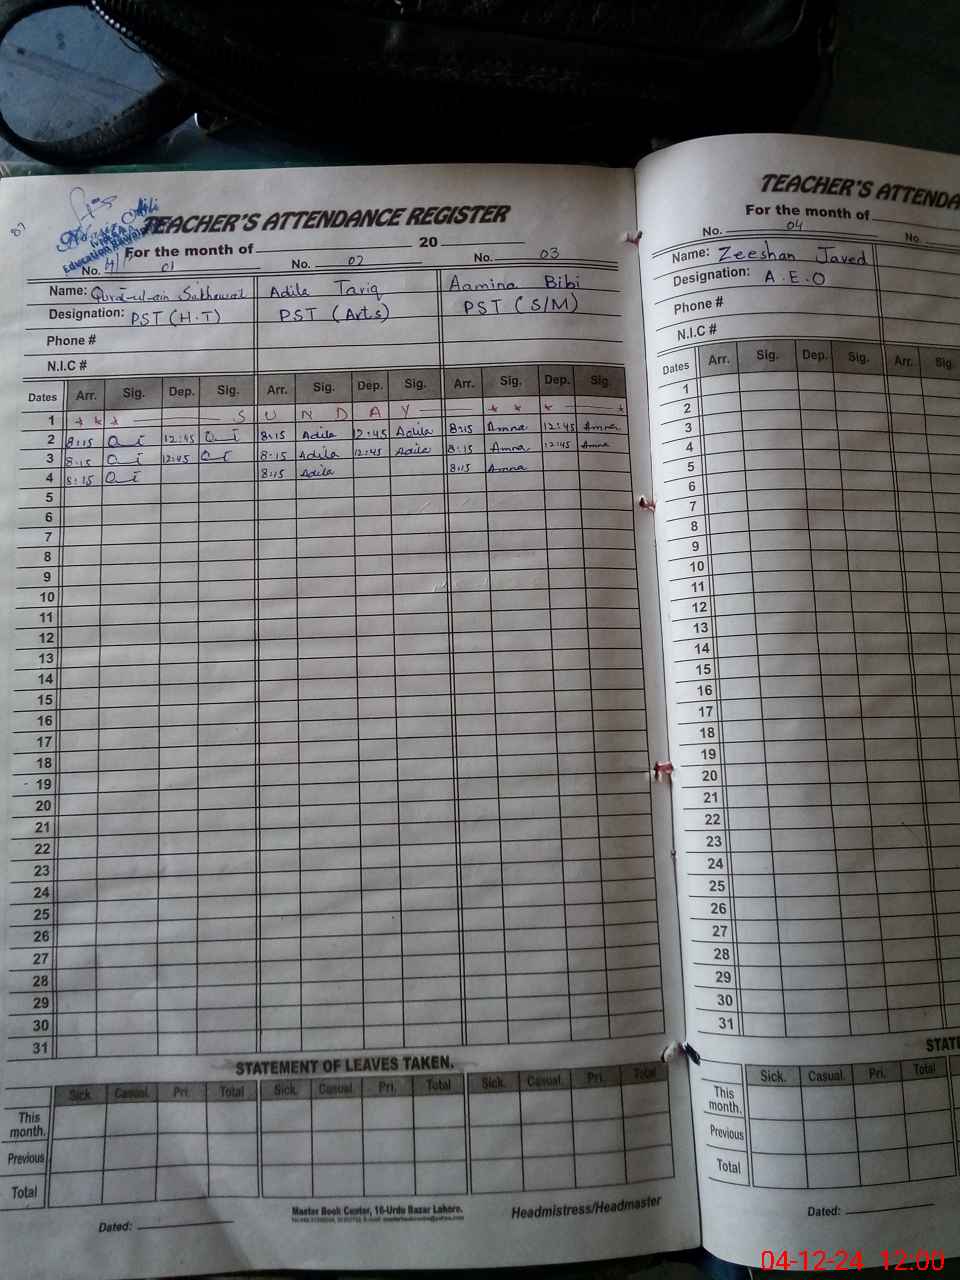 TEACHER'S ATTENDANCE REGISTER
For the month of 20
No. 01 No. 02 No. 03
Name: Qurat-ul-ain Sakhawat Adila Tariq Aamina Bibi
Designation: PST (H.T) PST (Arts) PST (S/M)
Phone #
N.I.C #
Dates Arr. Sig. Dep. Sig. Arr. Sig. Dep. Sig. Arr. Sig. Dep. Sig.
1 S U N D A Y
2 8:15 12:45 8:15 Adila 12:45 Adila 8:15 Amna 12:45 Amna
3 8:15 12:45 8:15 Adila 12:45 Adila 8:15 Amna 12:45 Amna
4 8:15 8:15 Adila 8:15 Amna
5
6
7
8
9
10
11
12
13
14
15
16
17
18
19
20
21
22
23
24
25
26
27
28
29
30
31
STATEMENT OF LEAVES TAKEN.
Sick. Casual. Pri. Total Sick. Casual. Pri. Total Sick. Casual. Pri. Total
This month.
Previous
Total
Dated:
Master Book Center, 16-Urdu Bazar Lahore.
Headmistress/Headmaster
TEACHER'S ATTENDA
For the month of
No. 04 No.
Name: Zeeshan Javed
Designation: A.E.O
Phone #
N.I.C #
Dates Arr. Sig. Dep. Sig. Arr. Sig.
1
2
3
4
5
6
7
8
9
10
11
12
13
14
15
16
17
18
19
20
21
22
23
24
25
26
27
28
29
30
31
STATE
Sick. Casual. Pri. Total
This month.
Previous
Total
Dated:
04-12-24 12:00